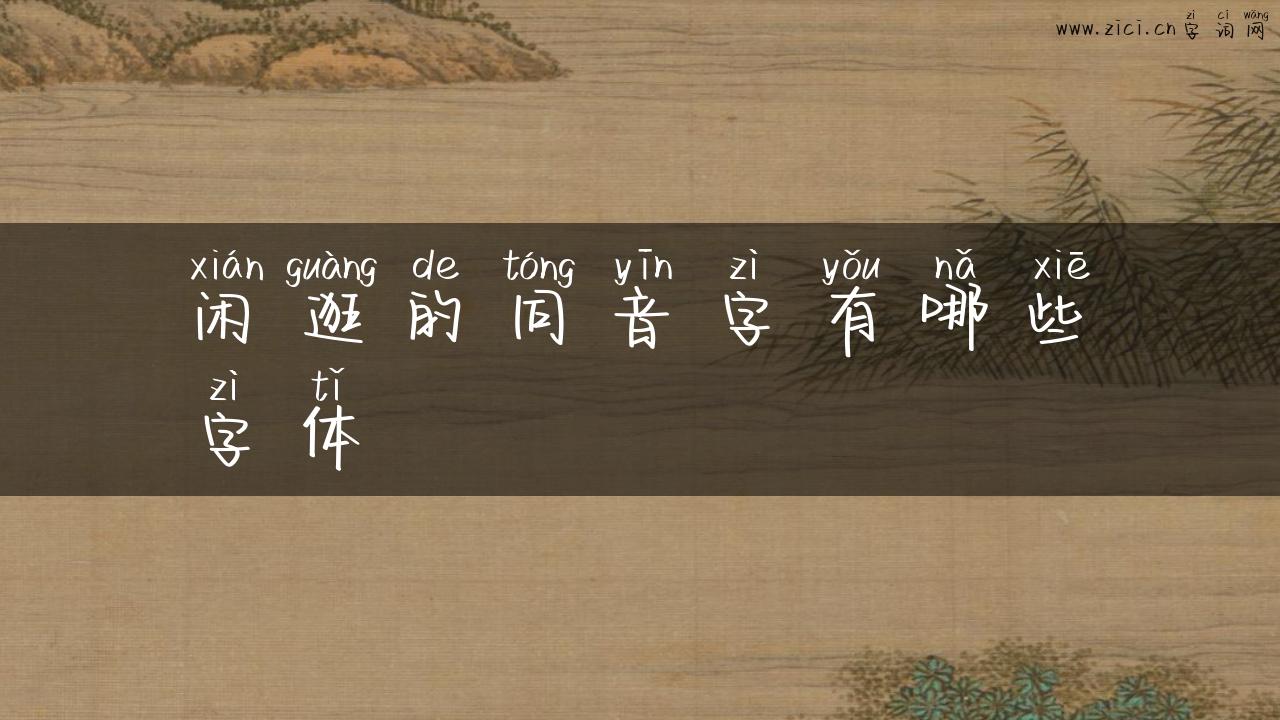 zì cí wǎng
www.zici.cn 字词网
xián guàng de tóng yīn zì yǒu nǎ xiē
闲逛的同音字有哪些
zì tǐ
字体